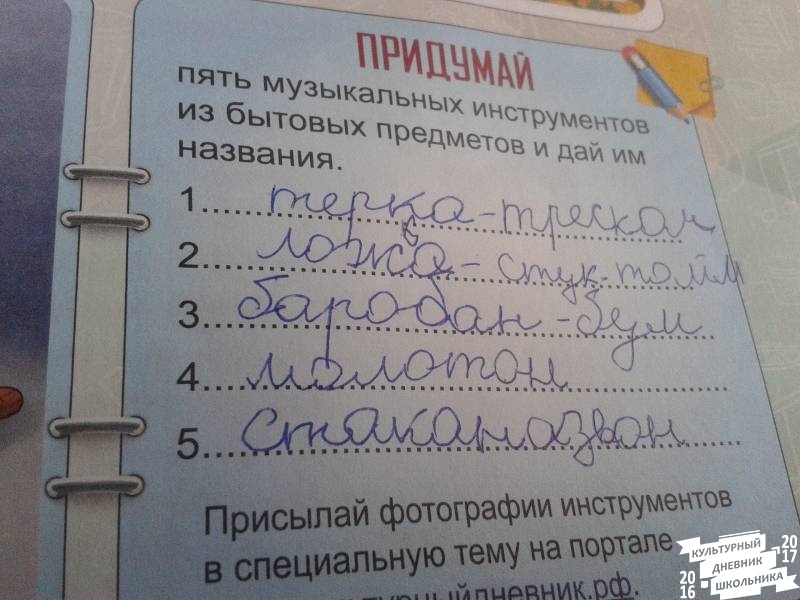 ПРИДУМАЙ
пять музыкальных инструментов
из бытовых предметов и дай им
названия.
1. терка-трескам
2. ложка-стук-томм
3. баробан-бум
4. молотон
5. стаканазвон
Присылай фотографии инструментов
в специальную тему на портале
турныйдневник.рф.
КУЛЬТУРНЫЙ
ДНЕВНИК
ШКОЛЬНИКА
2016
2017